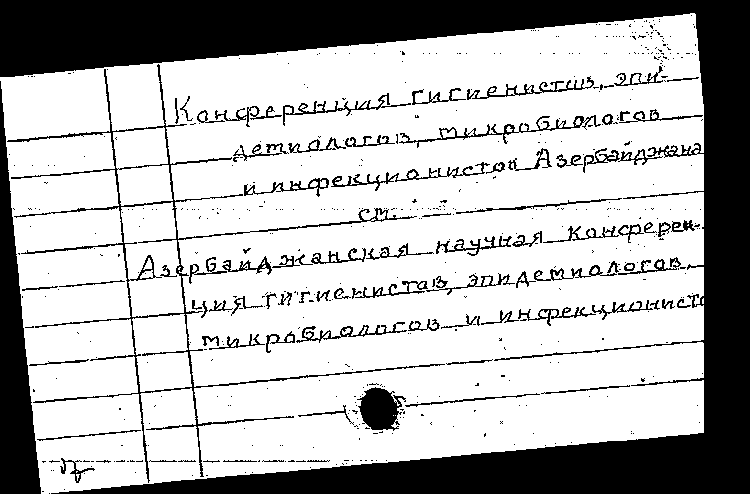 Конференция гигиенистов, эпи-
демиологов, микробиологов
и инфекционистов Азербайджана
см.
Азербайджанская научная конферен-
ция гигиенистов, эпидемиологов,
микробиологов и инфекционисто